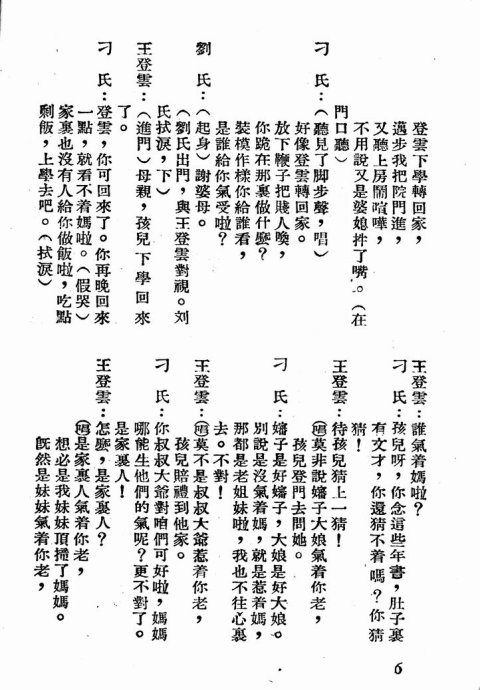 登雲下學轉回家，
邁步我把院門進，
又聽上房鬧喧嘩，
不用說又是婆媳拌了嘴。（在
門口聽）
刁　氏：（聽見了脚步聲，唱）
好像登雲轉回家。
放下鞭子把賤人喚，
你跪在那裏做什麽？
裝模作樣你給誰看，
是誰給你氣受啦？
劉　氏：（起身）謝婆母。
（劉氏出門，與王登雲對視。刘
氏拭淚，下）
王登雲：（進門）母親，孩兒下學回來
了。
刁　氏：登雲，你可回來了。你再晚回來
一點，就看不着媽啦。（假哭）
家裏也沒有人給你做飯啦，吃點
剩飯，上學去吧。（拭淚）
王登雲：誰氣着媽啦？
刁　氏：孩兒呀，你念這些年書，肚子裏
有文才，你還猜不着嗎？你猜
猜！
王登雲：待孩兒猜上一猜！
（唱）莫非說嬸子大娘氣着你老，
孩兒登門去問她。
刁　氏：嬸子是好嬸子，大娘是好大娘。
別說是沒氣着媽，就是惹着媽，
那都是老姐妹啦，我也不往心裏
去。不對！
王登雲：（唱）莫不是叔叔大爺惹着你老，
孩兒賠禮到他家。
刁　氏：你叔叔大爺對咱們可好啦，媽媽
哪能生他們的氣呢？更不對了。
是家裏人！
王登雲：怎麽，是家裏人？
（唱）是家裏人氣着你老，
想必是我妹妹頂撞了媽媽。
旣然是妹妹氣着你老，
6